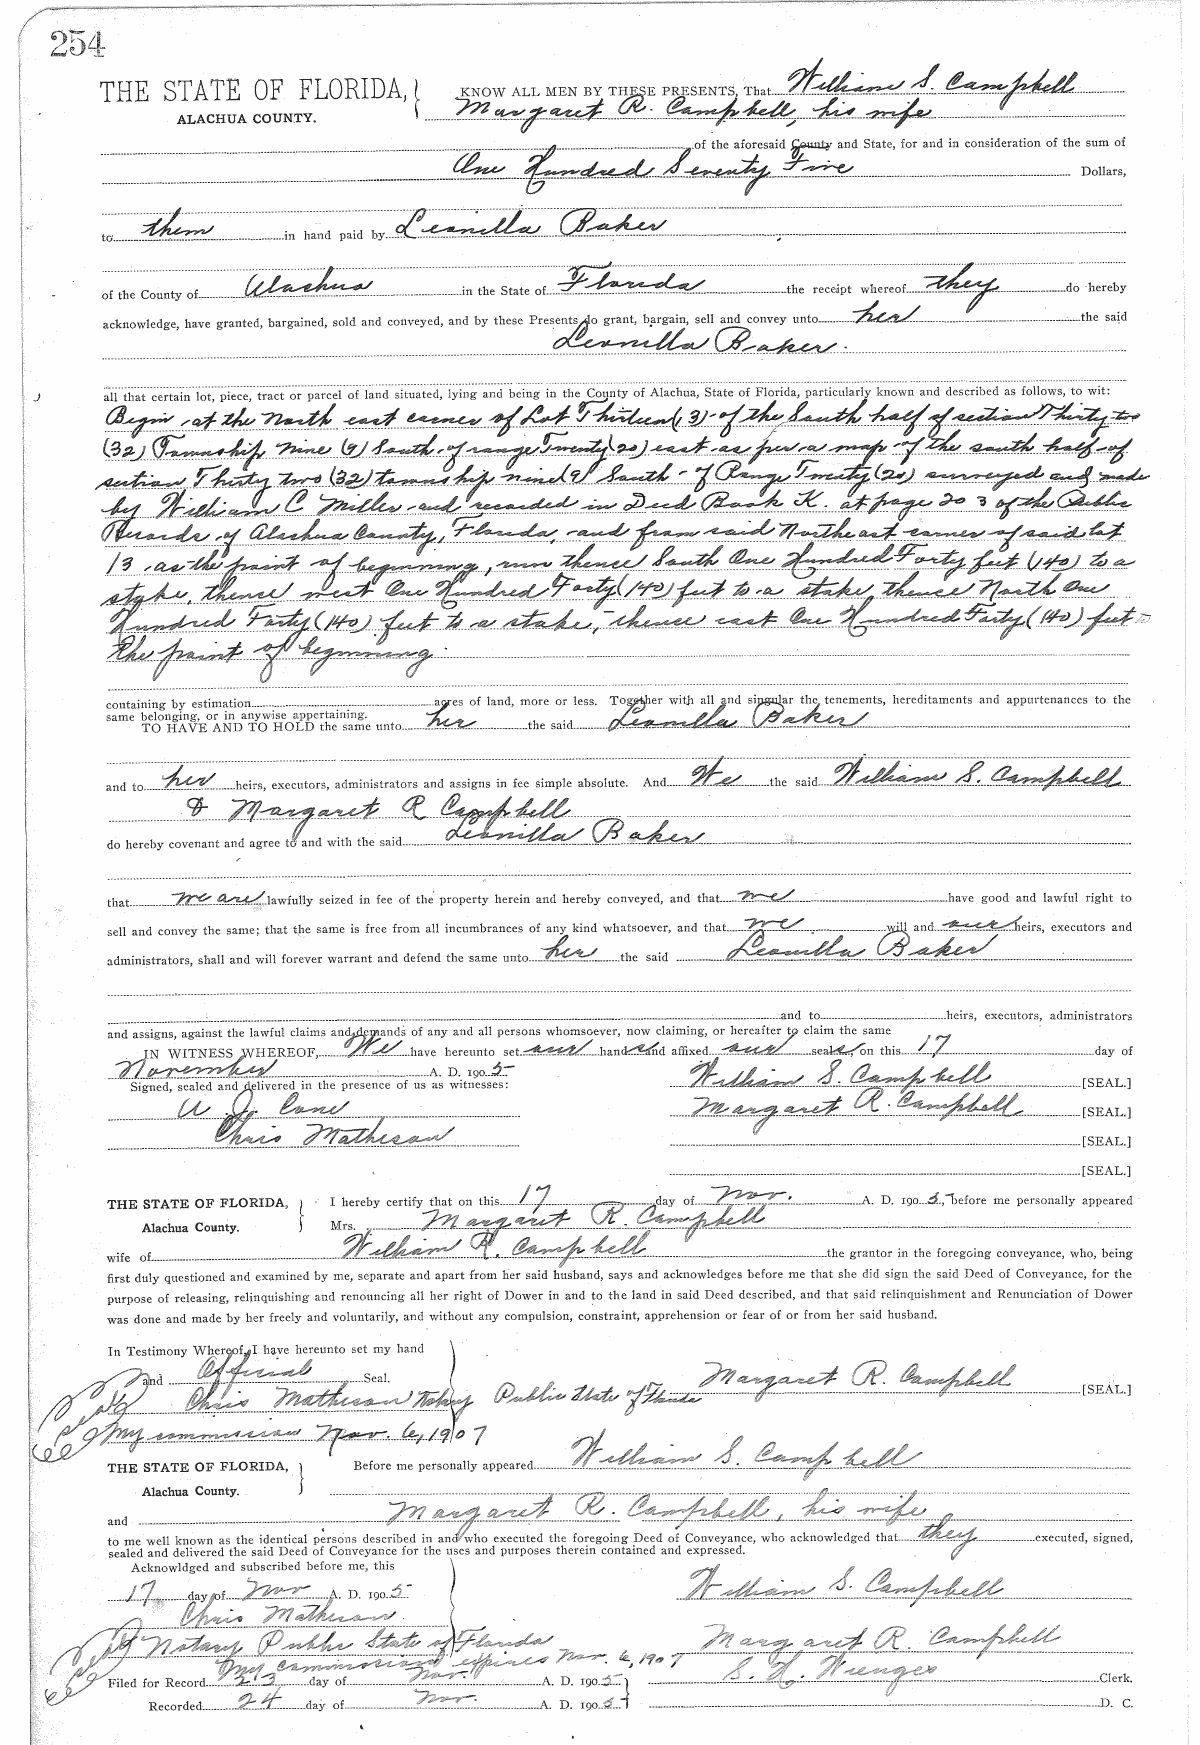 254
THE STATE OF FLORIDA, KNOW ALL MEN BY THESE PRESENTS, That William S. Campbell
ALACHUA COUNTY. Margaret R. Campbell, his wife
of the aforesaid County and State, for and in consideration of the sum of
One Hundred Seventy Five Dollars,
to them in hand paid by Leonilla Baker
of the County of Alachua in the State of Florida the receipt whereof they do hereby
acknowledge, have granted, bargained, sold and conveyed, and by these Presents do grant, bargain, sell and convey unto her the said
Leonilla Baker.
all that certain lot, piece, tract or parcel of land situated, lying and being in the County of Alachua, State of Florida, particularly known and described as follows, to wit:
Begin at the North east corner of Lot Thirteen (13) of the South half of section Thirty two
(32) Township nine (9) South of range Twenty (20) east as per a map of the south half of
section Thirty two (32) township nine (9) South of Range Twenty (20) surveyed and made
by William C Miller and recorded in Deed Book K. at page 203 of the Public
Records of Alachua County, Florida, and from said Northeast corner of said lot
13 as the point of beginning, run thence South One Hundred Forty feet (140) to a
stake, thence west One Hundred Forty (140) feet to a stake, thence North One
Hundred Forty (140) feet to a stake, thence east One Hundred Forty (140) feet to
the point of beginning.
containing by estimation acres of land, more or less. Together with all and singular the tenements, hereditaments and appurtenances to the
same belonging, or in anywise appertaining.
TO HAVE AND TO HOLD the same unto her the said Leonilla Baker
and to her heirs, executors, administrators and assigns in fee simple absolute. And We the said William S. Campbell
& Margaret R Campbell
do hereby covenant and agree to and with the said Leonilla Baker
that we are lawfully seized in fee of the property herein and hereby conveyed, and that we have good and lawful right to
sell and convey the same; that the same is free from all incumbrances of any kind whatsoever, and that we will and our heirs, executors and
administrators, shall and will forever warrant and defend the same unto her the said Leonilla Baker
and to heirs, executors, administrators
and assigns, against the lawful claims and demands of any and all persons whomsoever, now claiming, or hereafter to claim the same
IN WITNESS WHEREOF, We have hereunto set our hands and affixed our seals, on this 17 day of
November A. D. 1905
Signed, sealed and delivered in the presence of us as witnesses: William S. Campbell [SEAL.]
Margaret R. Campbell [SEAL.]
Chris Matheson [SEAL.]
[SEAL.]
THE STATE OF FLORIDA, I hereby certify that on this 17 day of Nov. A. D. 1905, before me personally appeared
Alachua County. Mrs. Margaret R. Campbell
wife of William R. Campbell the grantor in the foregoing conveyance, who, being
first duly questioned and examined by me, separate and apart from her said husband, says and acknowledges before me that she did sign the said Deed of Conveyance, for the
purpose of releasing, relinquishing and renouncing all her right of Dower in and to the land in said Deed described, and that said relinquishment and Renunciation of Dower
was done and made by her freely and voluntarily, and without any compulsion, constraint, apprehension or fear of or from her said husband.
In Testimony Whereof, I have hereunto set my hand
and Official Seal. Margaret R. Campbell [SEAL.]
Chris Matheson Notary Public State of Florida
My commission Nov. 6, 1907
THE STATE OF FLORIDA, Before me personally appeared William S. Campbell
Alachua County.
and Margaret R. Campbell, his wife
to me well known as the identical persons described in and who executed the foregoing Deed of Conveyance, who acknowledged that they executed, signed,
sealed and delivered the said Deed of Conveyance for the uses and purposes therein contained and expressed.
Acknowldged and subscribed before me, this
17 day of Nov A. D. 1905 William S. Campbell
Chris Matheson
Notary Public State of Florida Margaret R. Campbell
My commission expires Nov. 6, 1907
Filed for Record 23 day of Nov. A. D. 1905 S. H. Wienges Clerk.
Recorded 24 day of Nov. A. D. 1905 D. C.